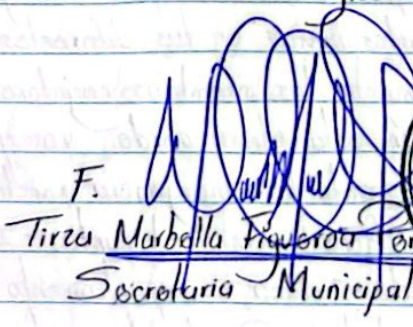 F.
Tirza Marbella Figueroa
Secretaria Municipal